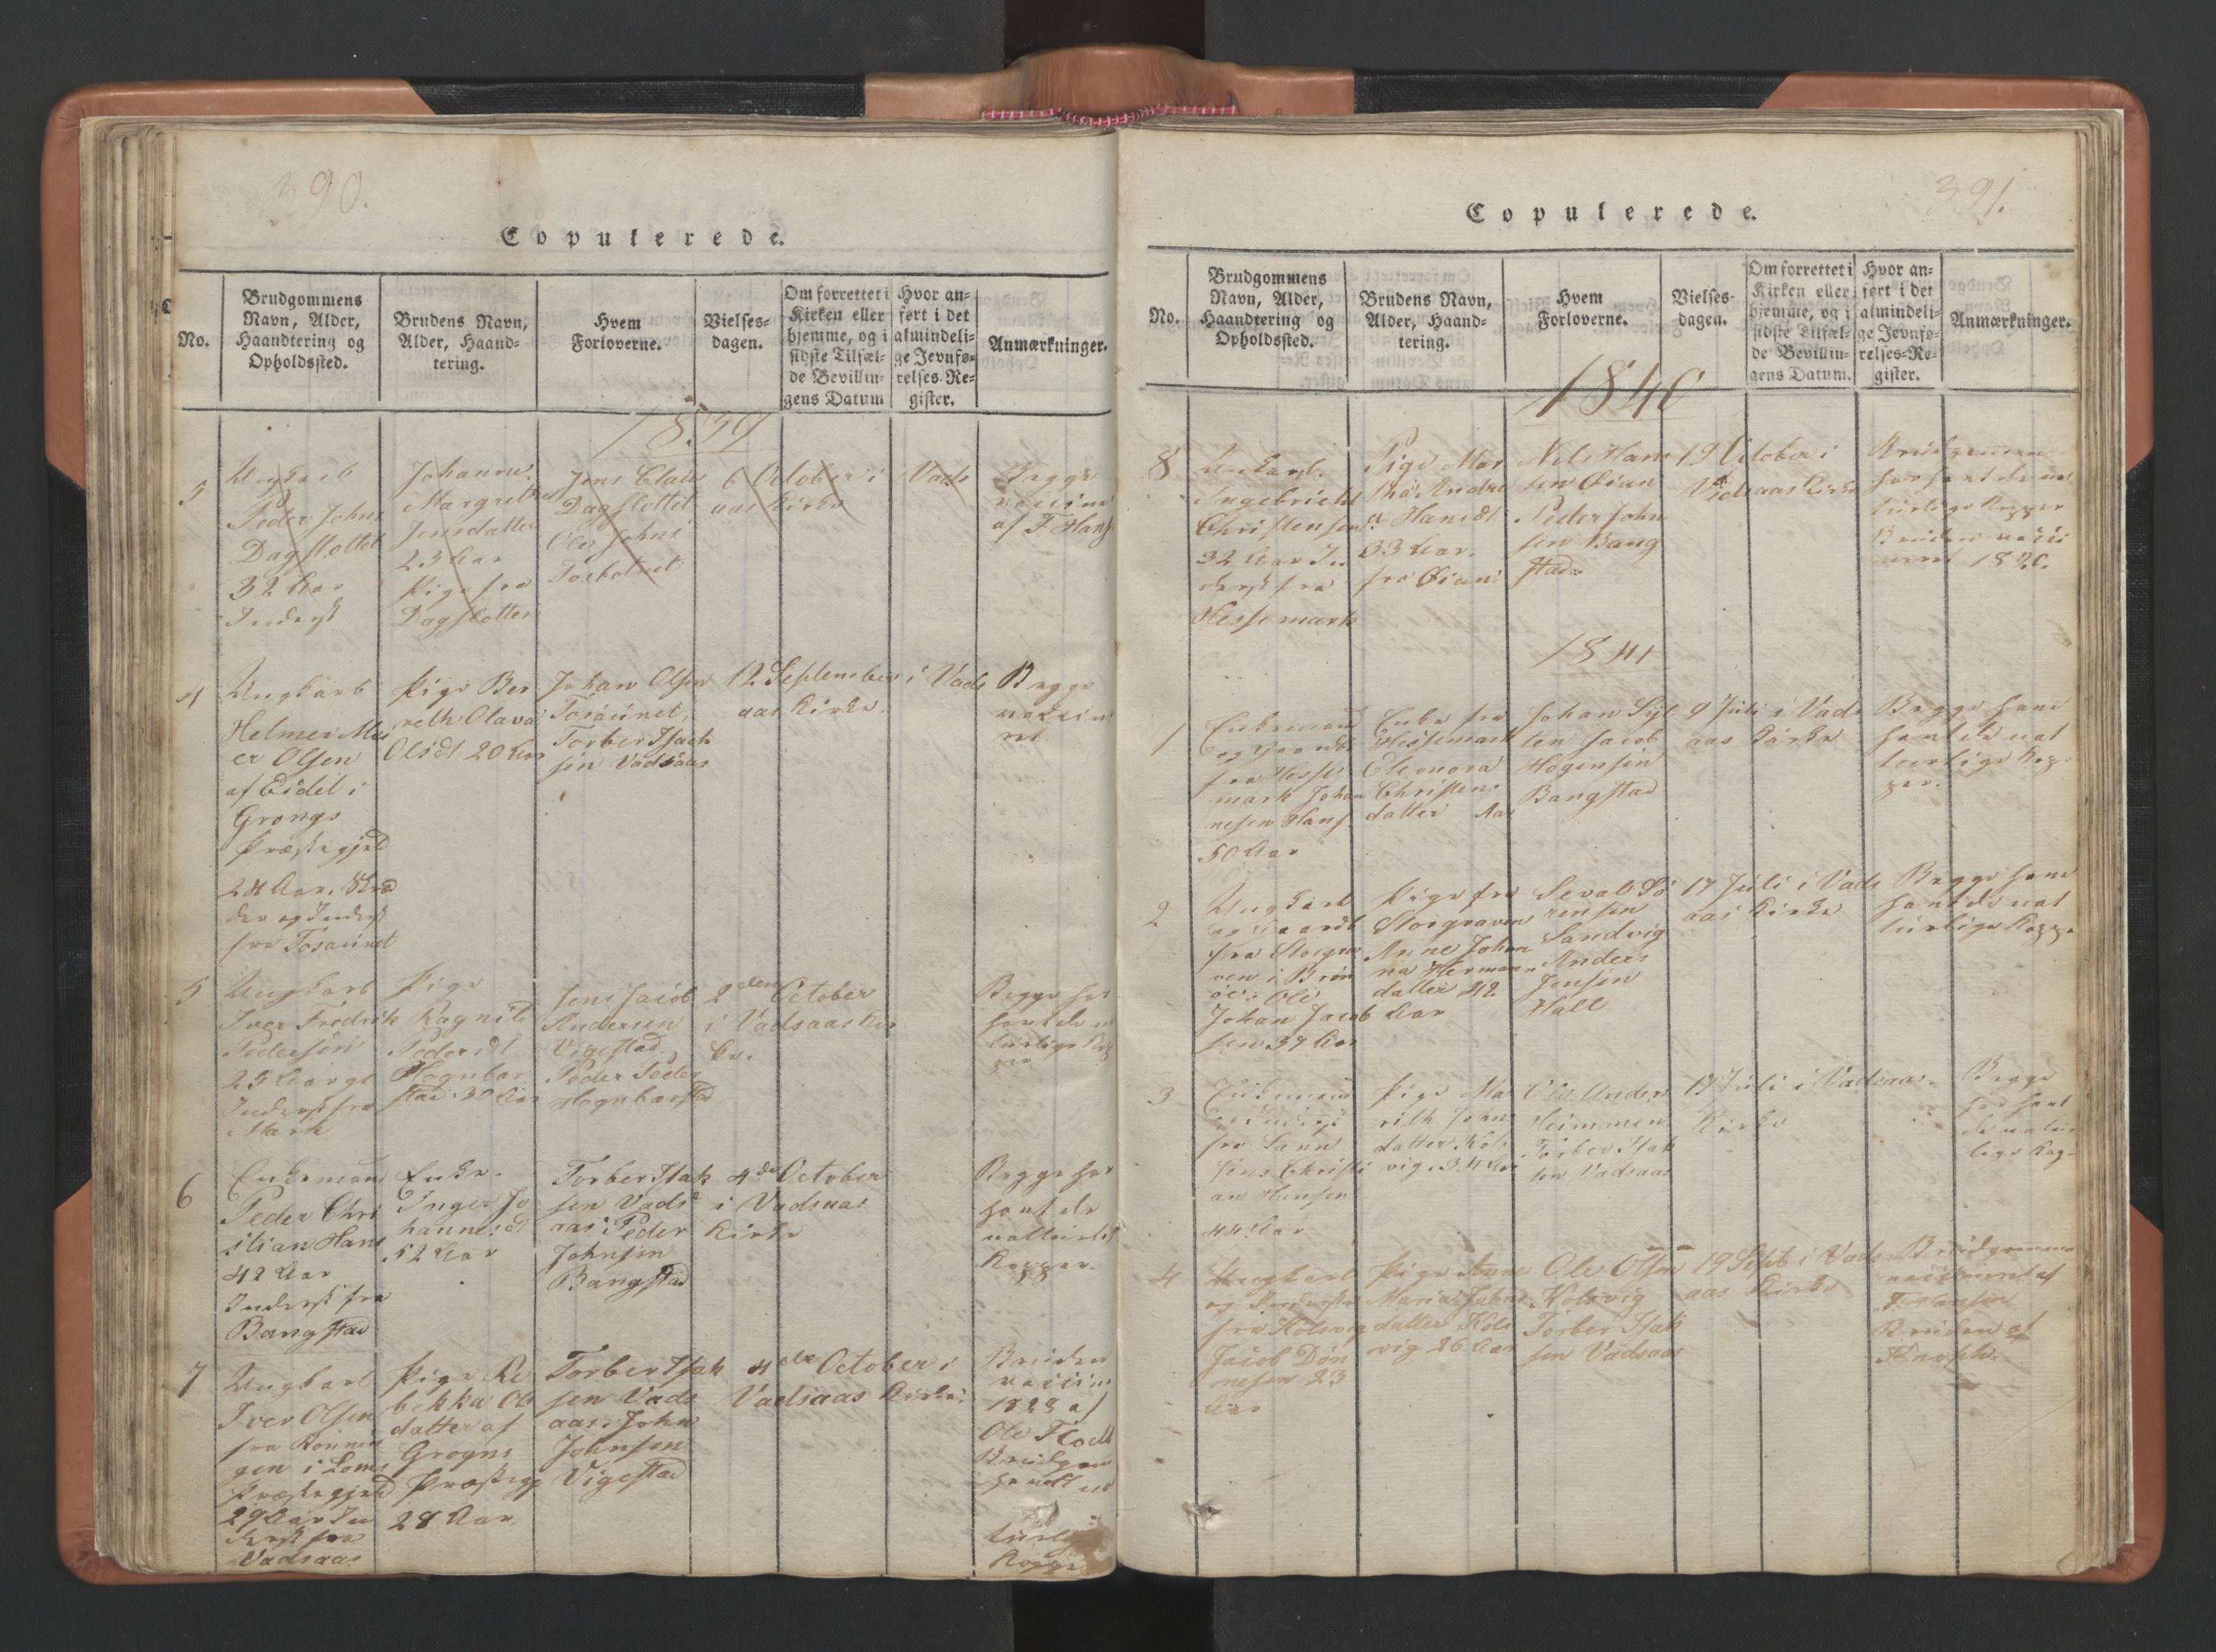 390.
Copulerede.
No.
Brudgommens
Navn, Alder,
Haandtering og
Opholdssted.
Brudens Navn,
Alder, Haand-
tering.
Hvem
Forloverne.
Vielses-
dagen.
Om forrettet i
Kirken eller
hjemme, og i
sidste Tilfæl-
de Bevillin-
gens Datum
Hvor an-
ført i det
almindeli-
ge Jevnfø-
relses-Re-
gister.
Anmærkninger.
1839
5
Ungkarl
Peder Johns
Dagslottet
32 Aar
Inderst
Johanne
Margrethe
Jensdatter
23 Aar
Pige fra
Dagslotten
Jens Claus
Dagslottet
Ole Johns
Tosbotnet
6 October i Vads
aas Kirke
Begge
vaccine
af F. Hans
4
Ungkarl
Helmer Mei
er Olsen
af Eidet i
Grongs
Præstegjeld
24 Aar.
der og Inderst
fra Tosaunet
Pige Ber
reth Olava
Olsdt 20 Aar
Johan Olsen
Tosaunet,
Torber Isach
sen Vadsaas
12 September i Vads
aas Kirke.
Begge
vaccine
ret
5
Ungkarl
Iver Fredrik
Pedersen
25 Aar gl
Inderst fra
Mark
Pige
Ragnild
Pedersdt
Hognbar
stad 30 Aar
Jens Jacob
Andersen
Vigestad
Peder Peder
Hognbarstad
2den October
i Vadsaas Kir
ke.
Begge har
havt de n
turlige Kop
per
6
Enkemand
Peder Chri
stian Hans
42 Aar
Inderst fra
Bangstad
Enke.
Inger Jo
hannesdt
52 Aar
Torber Isak
sen Vads
aas. Peder
Johnsen
Bangstad
4de October
i Vadsaas
Kirke
Begge har
havt de
naturlige
Kopper.
7
Ungkarl
Iver Olsen
fra Rønnin
gen i Loms
Præstegjeld
29 Aar In
derst fra
Vadsaas
Pige Re
bekka Ols
datter af
Grogns
Præstegj
28 Aar.
Torber Isak
sen Vads
aas. John
Johnsen
Vigestad
4de October i
Vadsaas Kirke.
Bruden
vaccin
1828 af
Ole Floth
Brudgom
havt na
turlig
Koppe
391.
Copulerede.
No.
Brudgommens
Navn, Alder,
Haandtering og
Opholdssted.
Brudens Navn,
Alder, Haand-
tering.
Hvem
Forloverne.
Vielses-
dagen.
Om forrettet i
Kirken eller
hjemme, og i
sidste Tilfæl-
de Bevillin-
gens Datum.
Hvor an-
ført i det
almindeli-
ge Jevnfø-
relses-Re-
gister.
Anmærkninger.
1840
8
Ungkarl.
Ingebrickt
Christensen
32 Aar In
derst fra
Hessemark
Pige Mar
tha Andre
a Hansdt
33 Aar.
fra Øian
Nils Han
sen Øian
Peder John
sen Bang
stad.
19 October i
Vadsaas Kirke
Brudgommen
har havt de na
turlige Kopper
Bruden vacci
neret 1820.
1841
1
Enkemand
og Gaardb
fra Hesse
mark Johan
nesen Hans
50 Aar
Enke fra
Hessemark
Eleonora
Christens
datter Aar
Johan Syl
ten Jacob
Hogensen
Bangstad
9 Juli i Vads
aas Kirke
Begge have
havt de nat
turlige Kop-
per.
2
Ungkarl
og Gaardb
fra Storgra
ven i Brøn
øe. Ole
Johan Jacob
sen 37 Aar
Pige fra
Storgraven
Anne Johan
na Hermann
datter 42
Aar
Sevald Sø
rensen
Sandvig
Anders
Jensen
Hall
17 Juli i Vads
aas Kirke
Begge have
havt de nat
turlige Koppe
3
Enkemand
og Inderst
fra Lann
Jens Christi
an Hansen
44 Aar
Pige Ma
rith Johns
datter Kols
vig. 34 Aar
Ole Anders
Heimmen
Torber Isak
sen Vadsaas
17 Juli i Vadsaas.
Kirke
Begge
har havt
de natur
lige Kop-
4
Ungkarl
og Inderste
fra Kolsvig
Jacob Døn
nesen 23
Aar
Pige Anne
Maria Johns
datter Kols
vig 26 Aar
Ole Olsen
Kolsvig
Torber Isak
sen Vadsaas
19 Sept i Vads
aas Kirke
Brudgommen
vaccineret af
F. Hansen
Bruden af